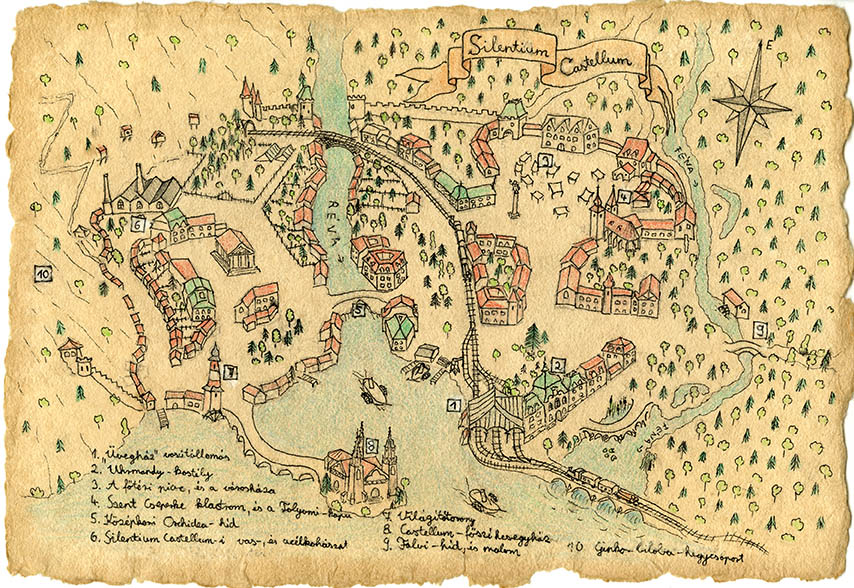 Silentium
Castellum
E
FENA
RÉVA
GUNDE
1
2
3
4
5
6
7
8
9
10
1. „Üvegház" vasútállomás
2. Uhrmandy-kastély
3. A főtéri piac, és a városháza
4. Szent Cseperke klastrom, és a Tólyomi-kapu
5. Középkori Orchidea-híd
6. Silentium Castellum-i vas-, és acélkohászat
7. Világítótorony
8. Castellum-főszékesegyház
9. Falvi-híd, és malom
10 Ginkgo biloba-hegycsoport